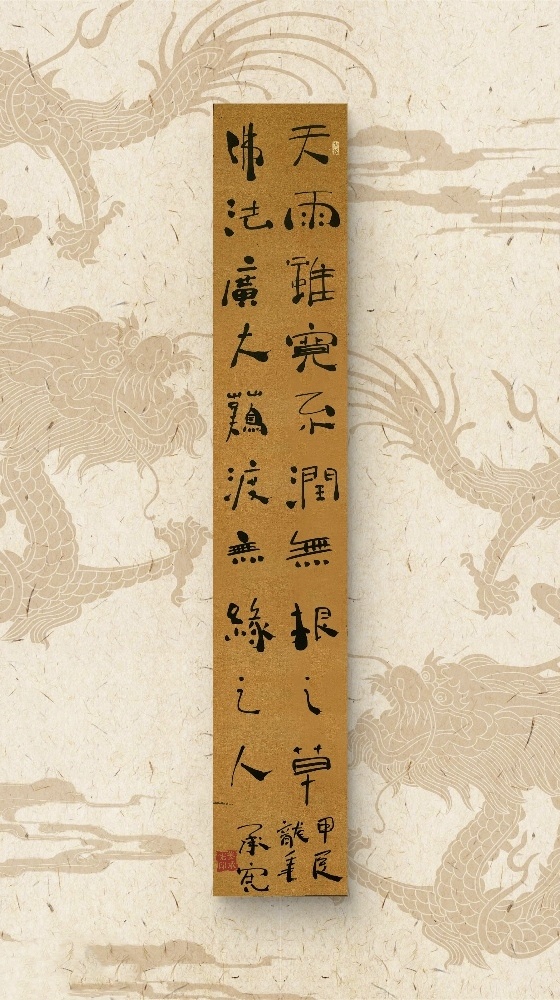 天雨雖寬不潤無根之草
佛法廣大難渡無緣之人
甲辰
龍年
承